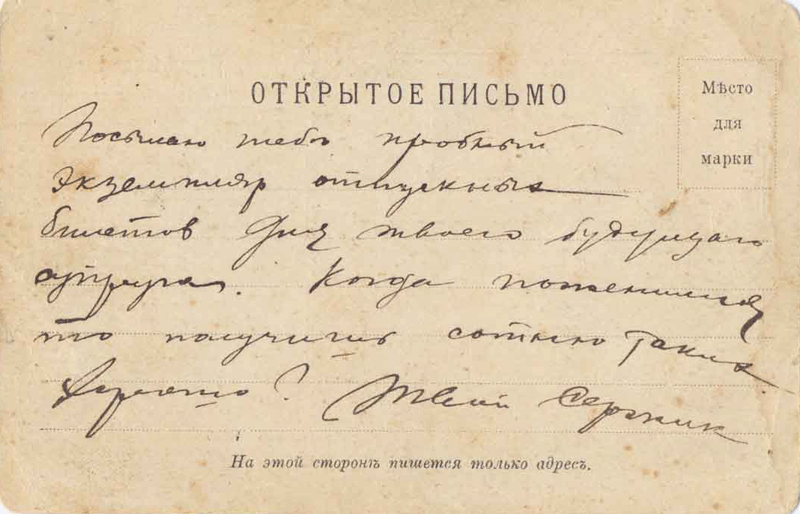 ОТКРЫТОЕ ПИСЬМО
Мѣсто
для
марки
Посылаю тебѣ пробный
экземпляр отпускных
билетов для твоего будущаго
супруга. Когда поженимся
то получишь сотню таких
Хорошо? Твой Сержик
На этой сторонѣ пишется только адресъ.